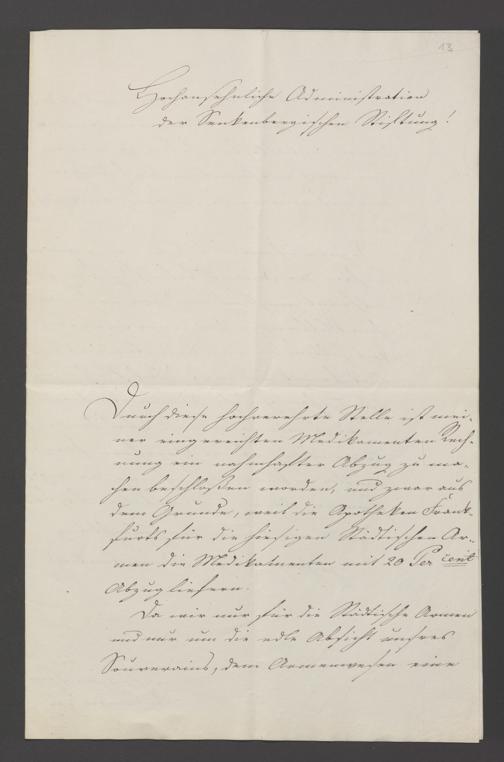 13
Hochansehnliche Administration
der Senkenbergischen Stiftung!
Durch diese hochverehrte Stelle ist mei-
ner eingereichten Medikamenten Rech-
nung ein nahmhafter Abzug zu ma-
chen beschloßen worden, und zwar aus
dem Grunde, weil die Apotheken Frank-
furts für die hiesigen Städtischen Ar-
men die Medikamenten mit 20 Per cent
Abzug liefern.
Da wir nur für die Städtische Armen
und nur um die edle Absicht unsres
Souverains, dem Armenwesen eine